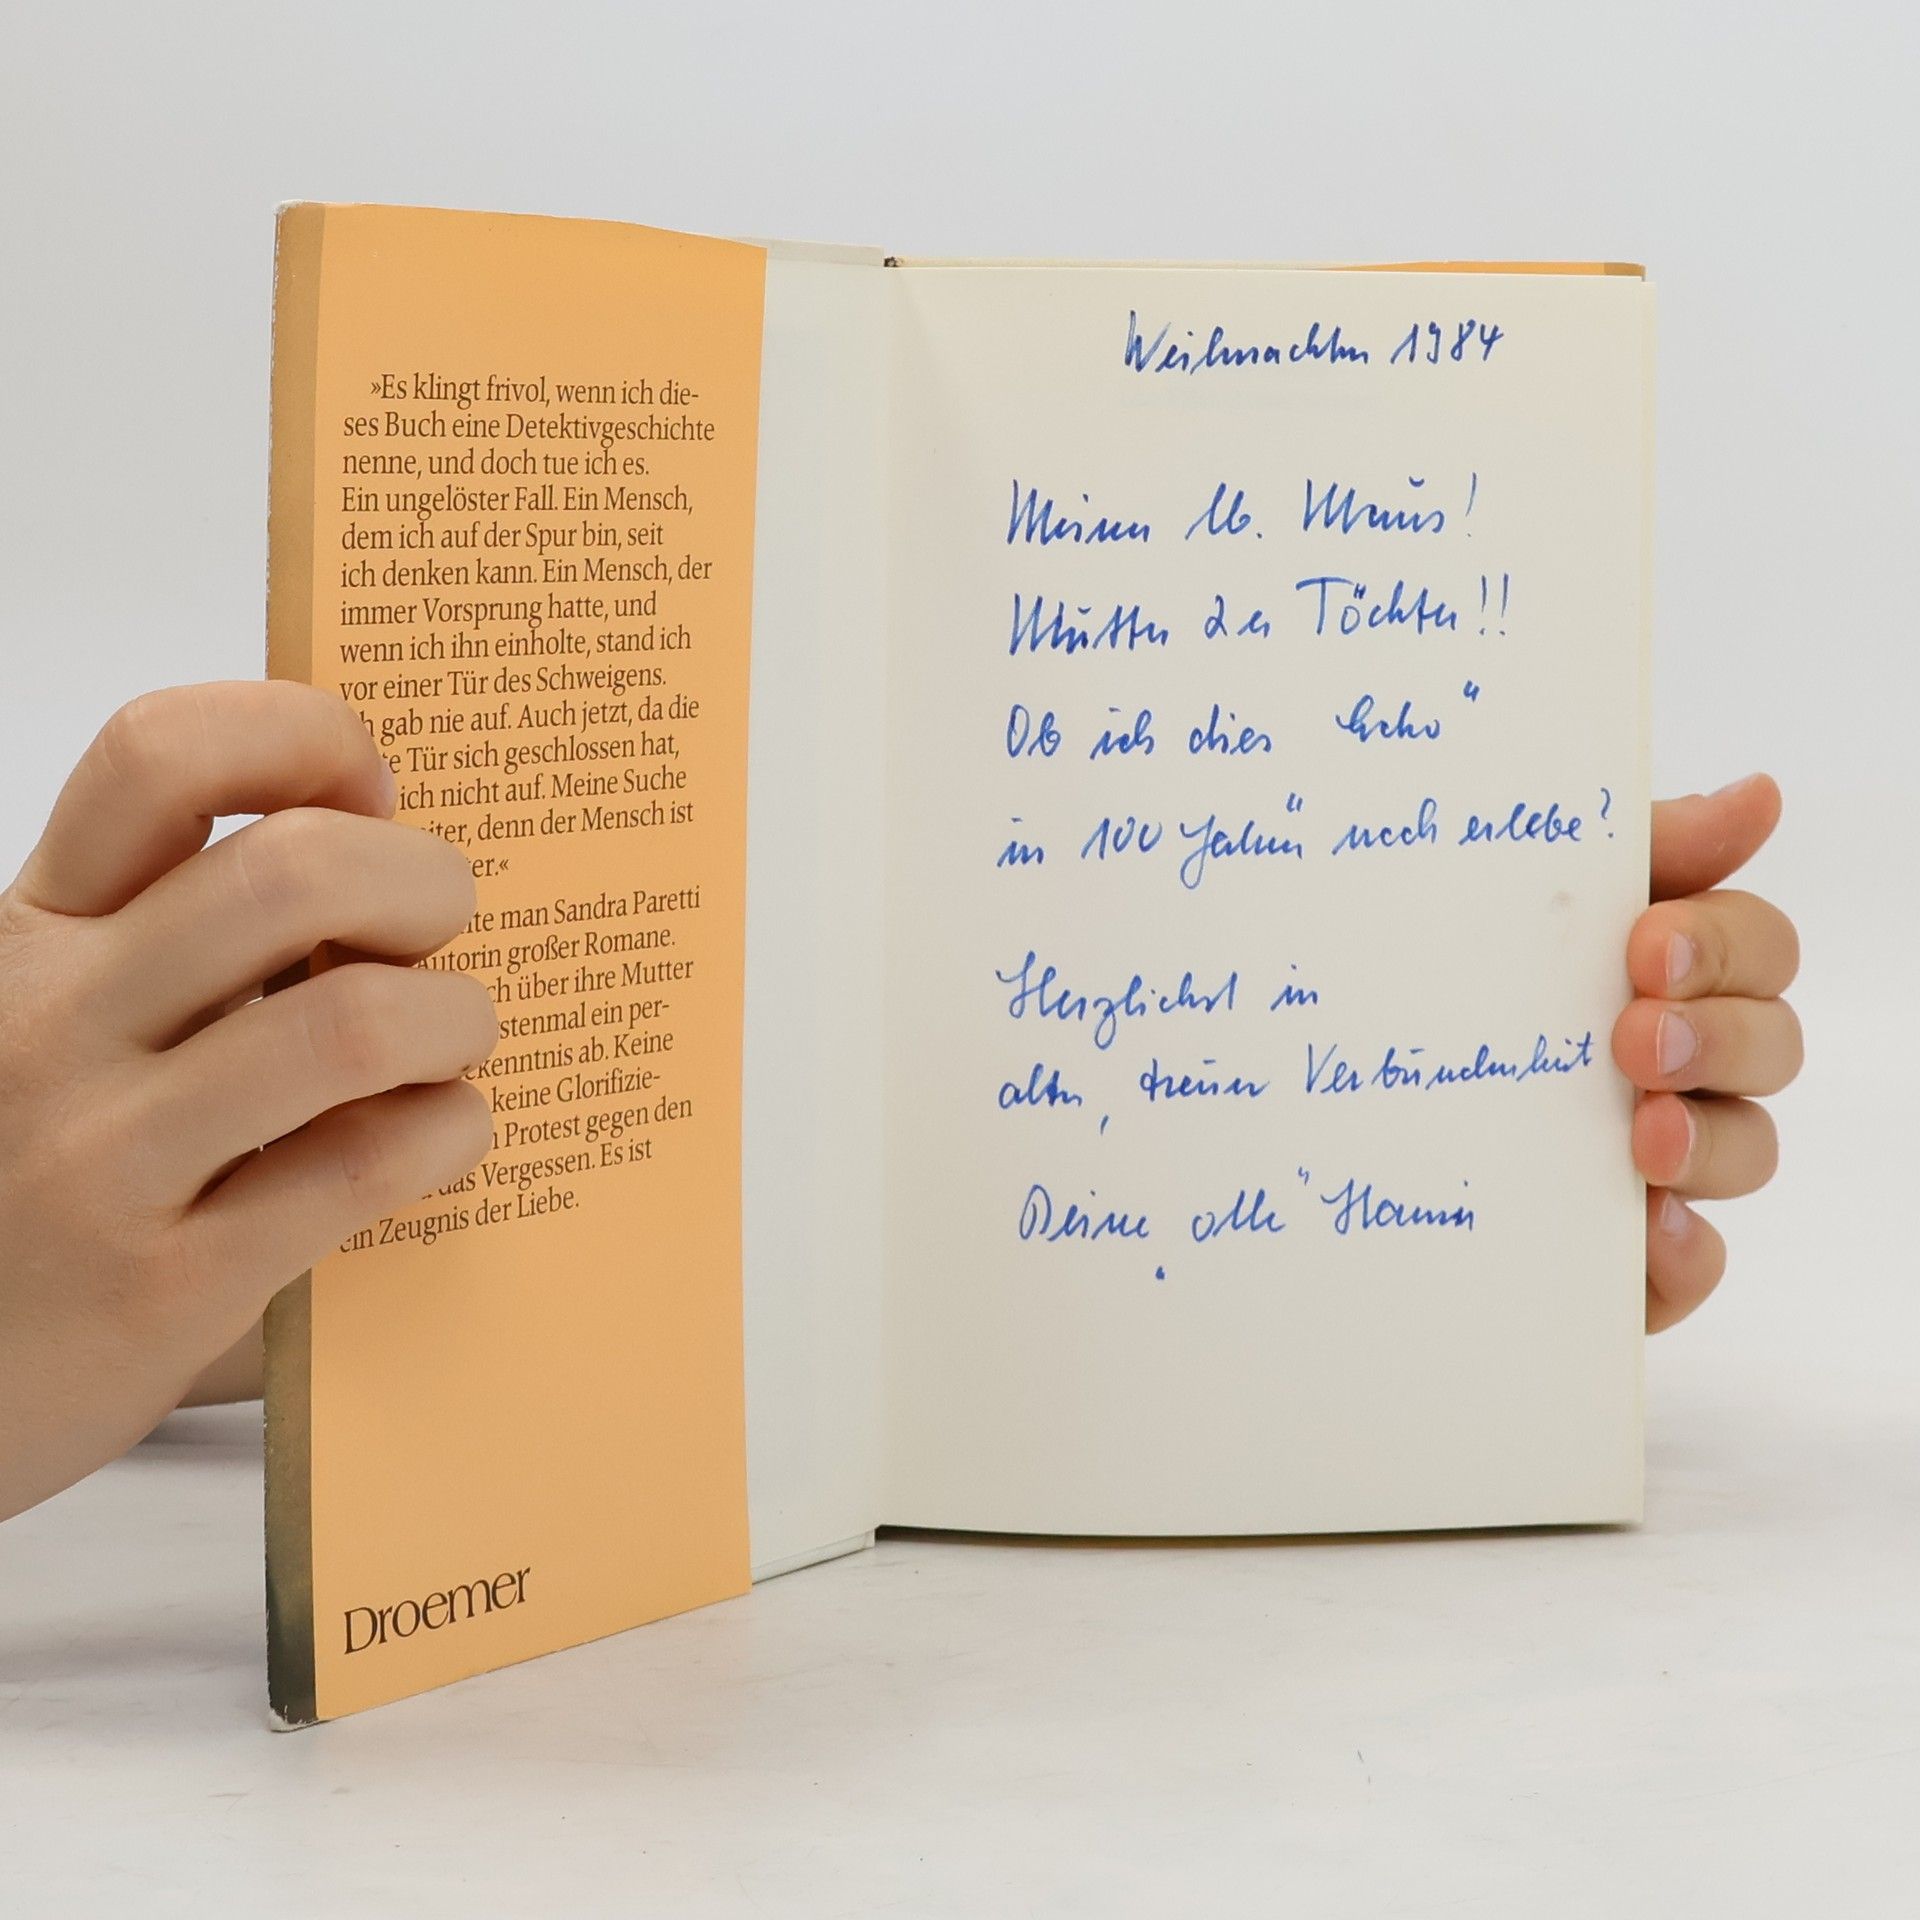 »Es klingt frivol, wenn ich die-
ses Buch eine Detektivgeschichte
nenne, und doch tue ich es.
Ein ungelöster Fall. Ein Mensch,
dem ich auf der Spur bin, seit
ich denken kann. Ein Mensch, der
immer Vorsprung hatte, und
wenn ich ihn einholte, stand ich
vor einer Tür des Schweigens.
gab nie auf. Auch jetzt, da die
Tür sich geschlossen hat,
ich nicht auf. Meine Suche
denn der Mensch ist
man Sandra Paretti
Autorin großer Romane.
über ihre Mutter
ein per-
ab. Keine
keine Glorifizie-
Protest gegen den
das Vergessen. Es ist
ein Zeugnis der Liebe.
Droemer
Weihnachten 1984
Meiner lb. Maus!
Mutter 2er Töchter!!
Ob ich dies Echo"
in 100 Jahren" noch erlebe?
Herzlichst in
alter, treuer Verbundenheit
Deine „olle" Hanni